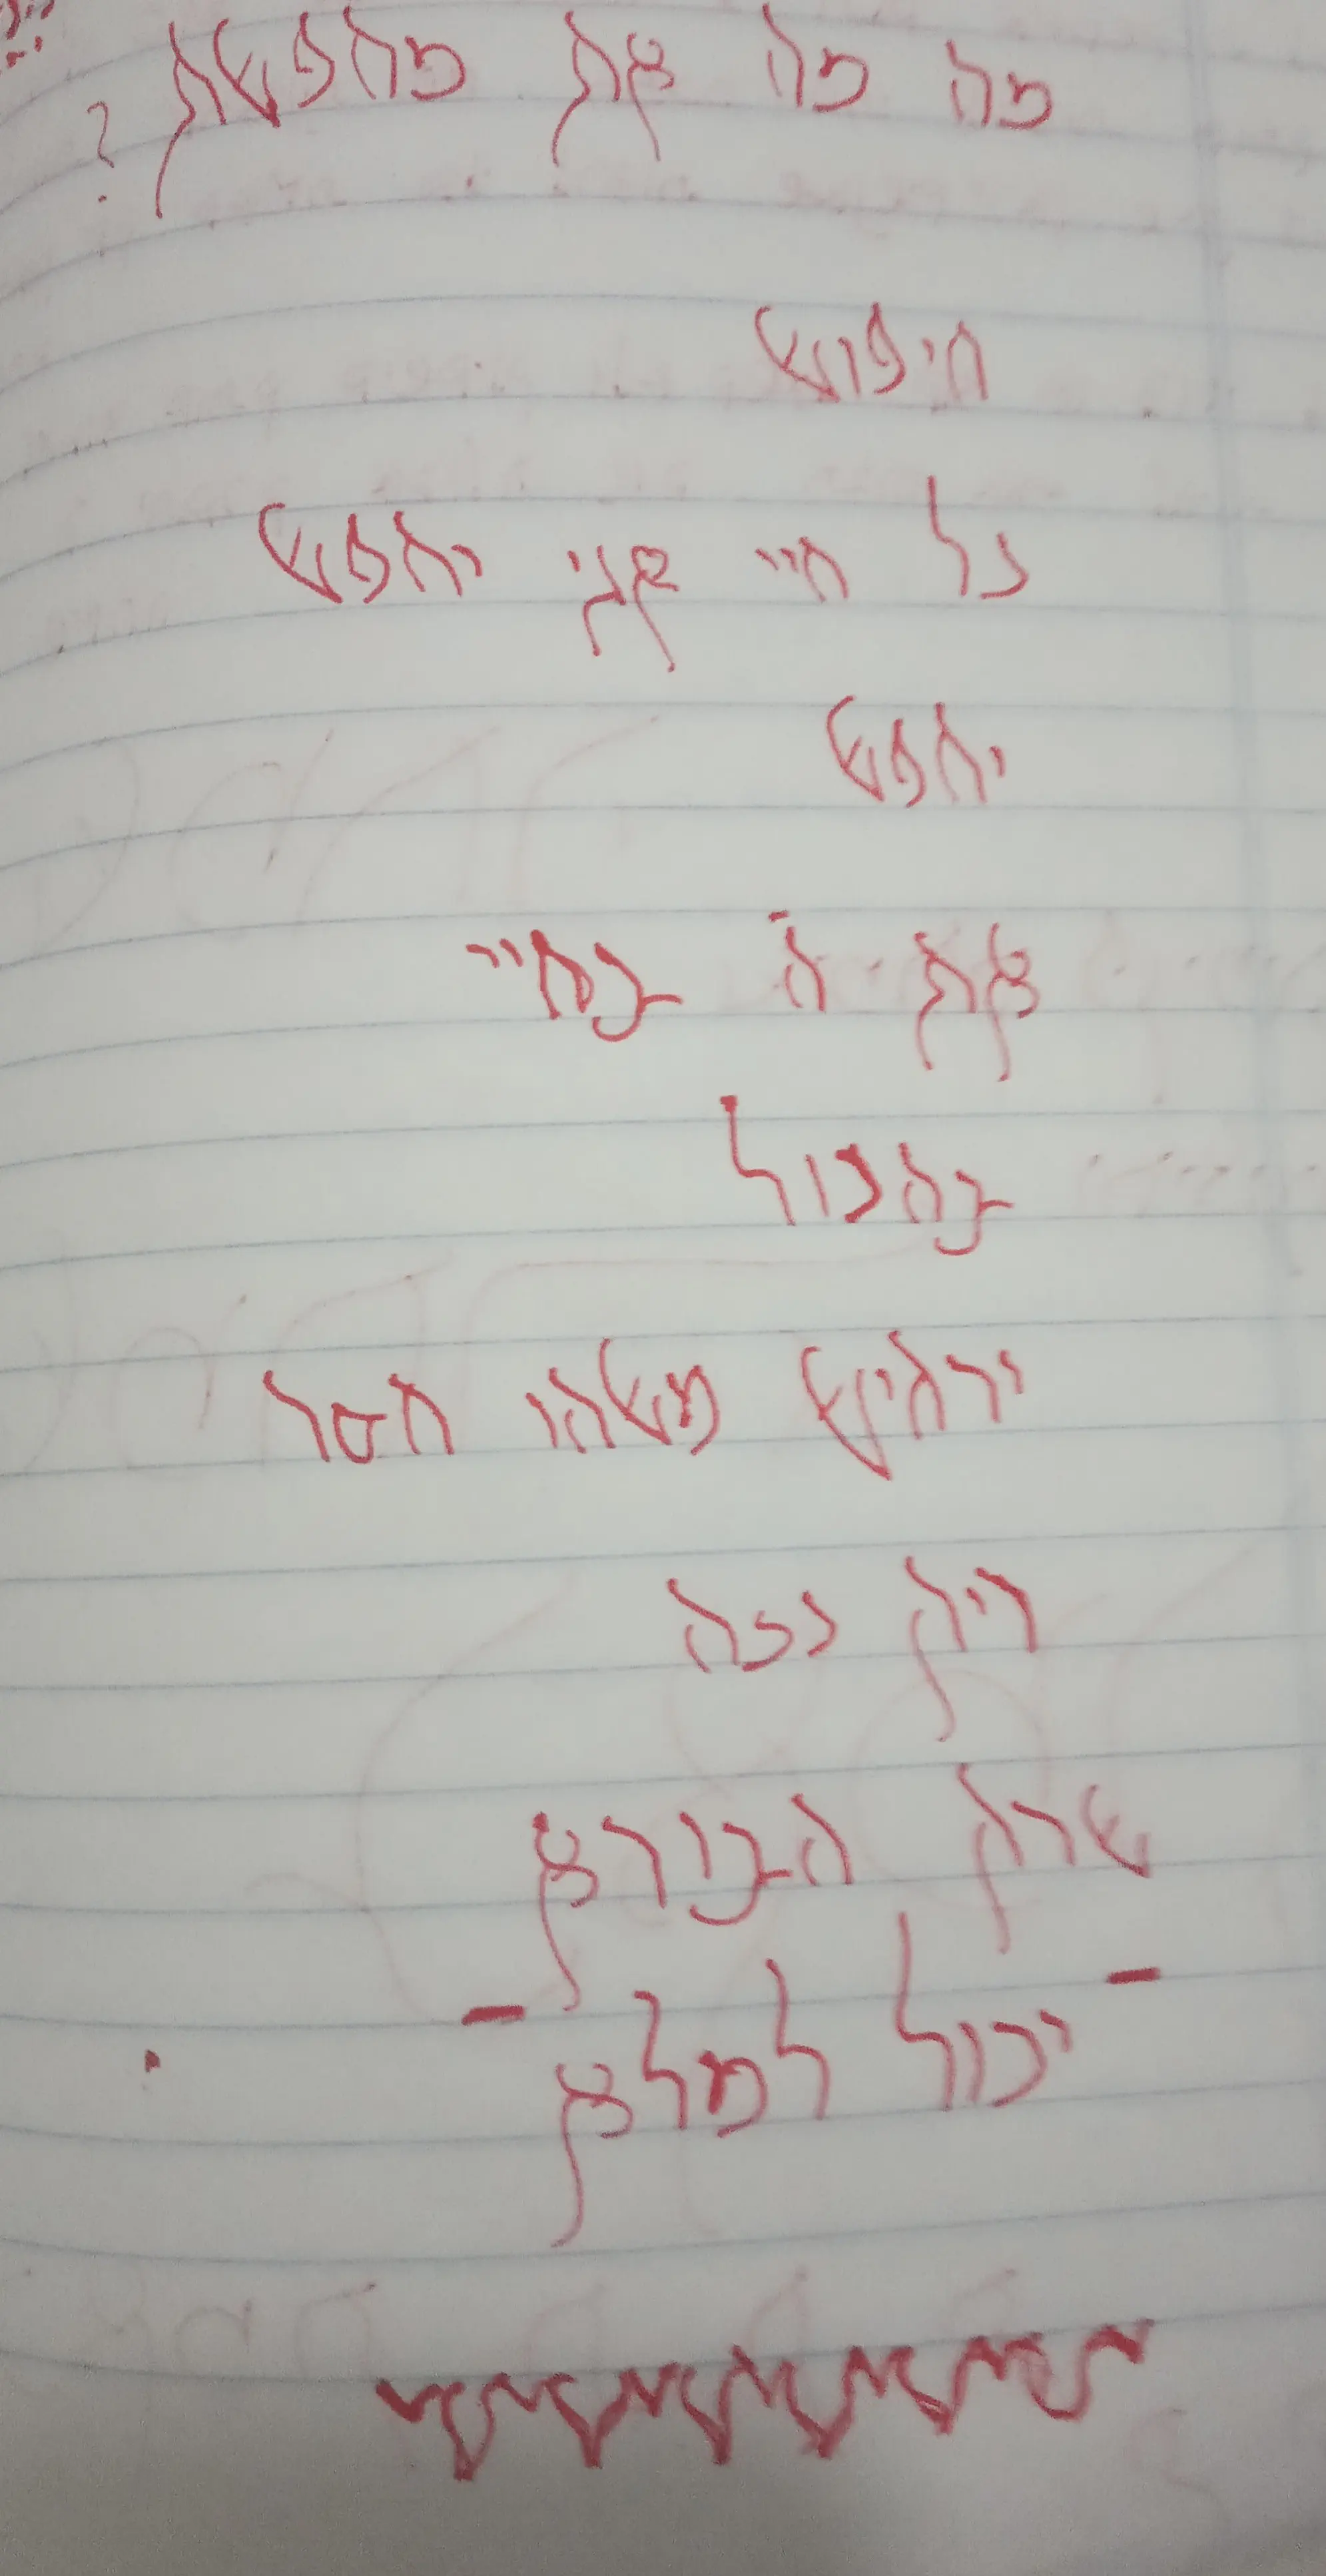 מה מה את מחפשת ?
חיפוש
כל חיי אני יחפש
יחפש
את ה' בחיי
בהכול
ירגיש משהו חסר
ריק ככה
שרק הבורא
- יכול למלא -